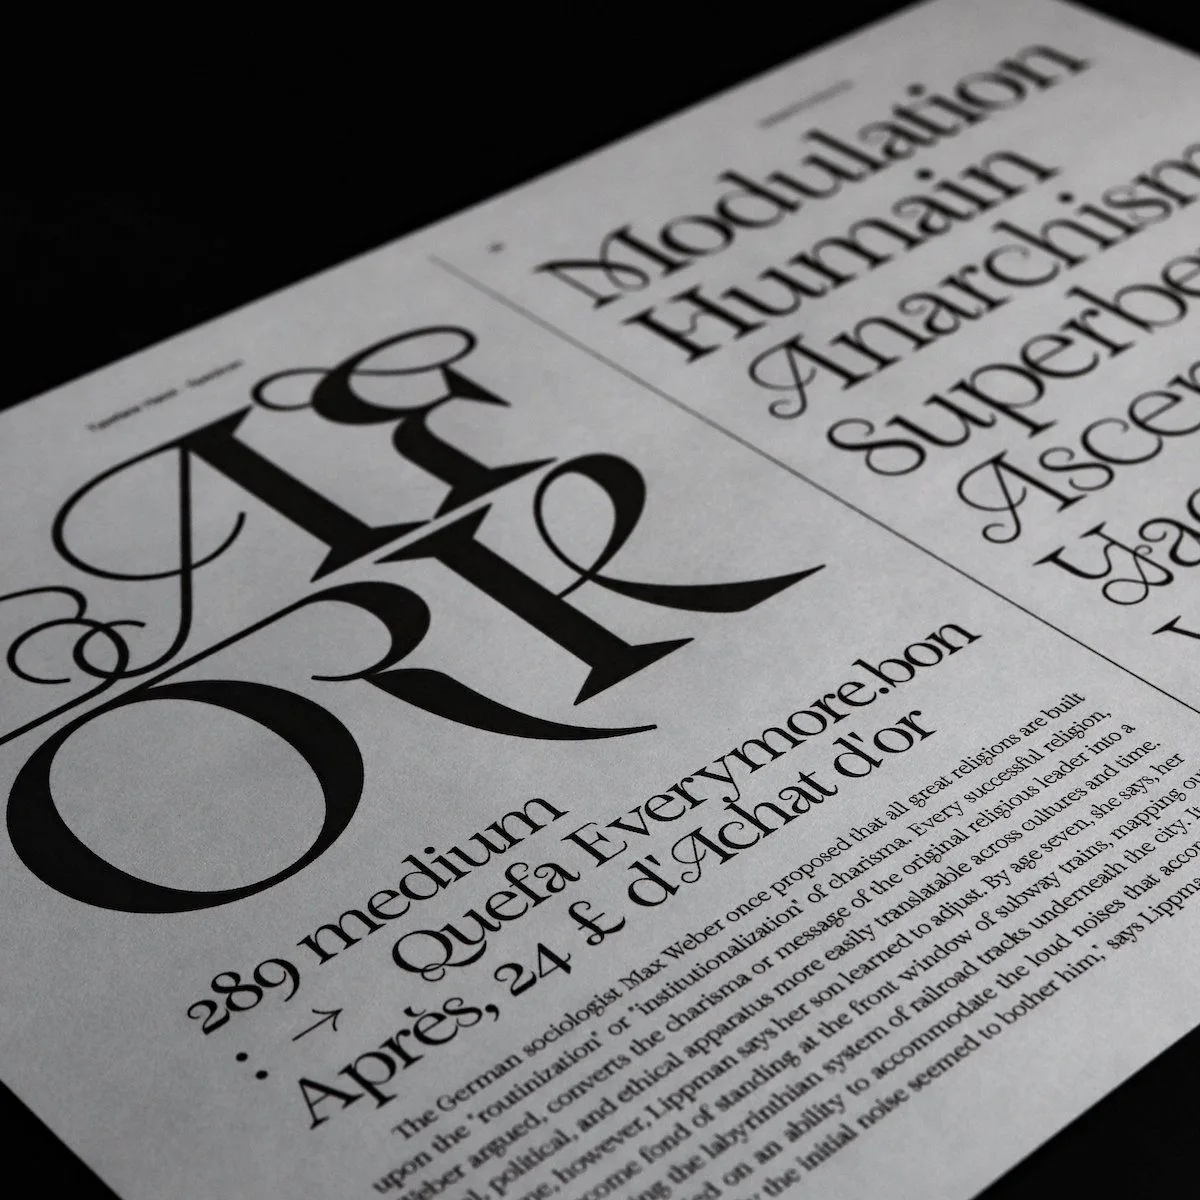 AE
ORK
289 medium
: → Quefa Everymore.bon
Après, 24 £ d'Achat d'or
The German sociologist Max Weber once proposed that all great religions are built
upon the "routinization" or "institutionalization" of charisma. Every successful religion,
Weber argued, converts the charisma or message of the original religious leader into a
political, and ethical apparatus more easily translatable across cultures and time.
however, Lippman says her son learned to adjust. By age seven, she says, her
fond of standing at the front window of subway trains, mapping
the labyrinthian system of railroad tracks underneath the city.
on an ability to accommodate the loud noises that
the initial noise seemed to bother him," says
Modulation
Humain
Anarchism
Superbe
Ascen
Yac